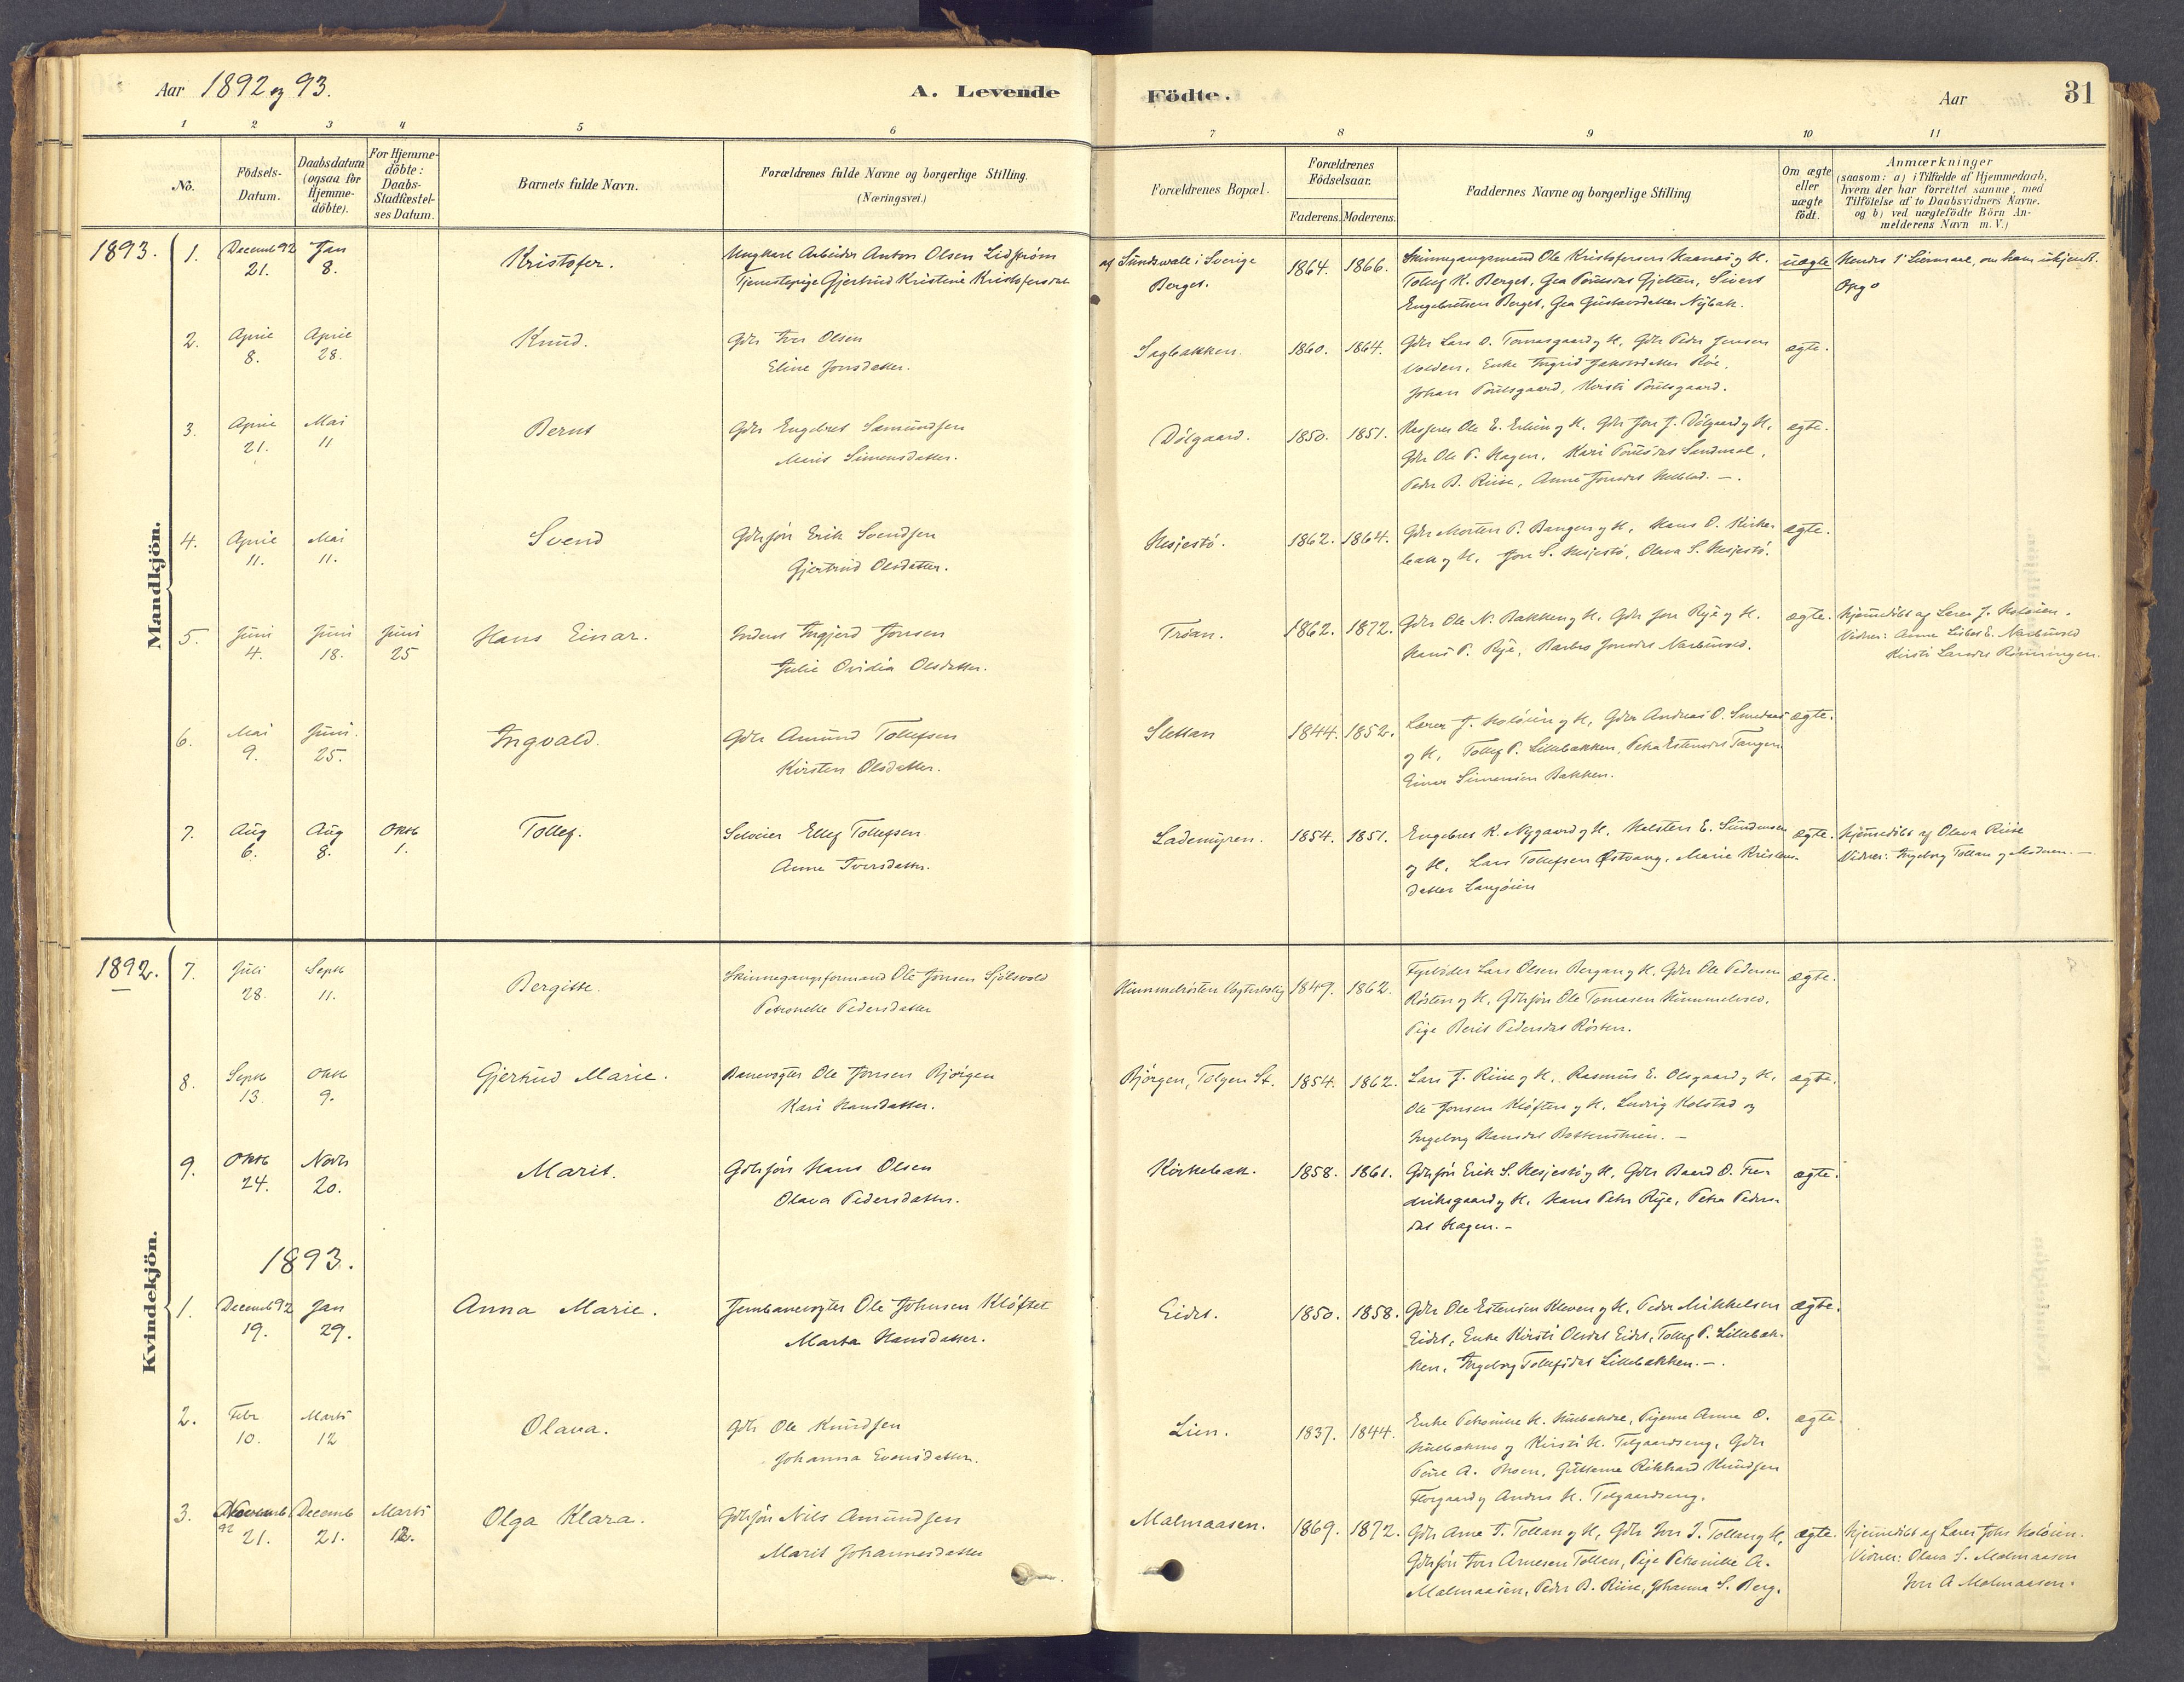 Aar 1892 og 93.
A. Levende
Födte.
Aar
31
1 2 3 4 5 6 7 8 9 10 11
No.
Födsels-
Datum.
Daabsdatum
(ogsaa for
Hjemme-
döbte).
For Hjemme-
döbte:
Daabs-
Stadfæstel-
ses Datum.
Barnets fulde Navn.
Forældrenes fulde Navne og borgerlige Stilling.
(Næringsvei.)
Forældrenes Bopæl.
Forældrenes
Födselsaar.
Faderens. Moderens.
Faddernes Navne og borgerlige Stilling
Om ægte
eller
uægte
födt.
Anmærkninger
(saasom: a) i Tilfælde af Hjemmedaab,
hvem der har forrettet samme, med
Tilföielse af to Daabsvidners Navne.
og b) ved uægtefödte Börn An-
melderens Navn m. V.)
Mandkjön.
1893. 1. Decemb 92 Jan
21. 8.
Kristofer.
Ungkarl Arbeider Anton Olsen Lidström
Tjenestepige Gjertrud Kristine Kristofersdat
af Sundswall i Sverige
Berget.
1864. 1866.
Skinnegangsmand Ole Kristofersen
Tollef K. Berget, Gea Poulsdat Gjelten, Sivert
Engebretsen Berget, Gea Gustavsdatter Nybak.
uægte
Hendes 1ste Leiermaal, om ham ubekjendt.
2. April April
8. 28.
Knud.
Gdr Iver Olsen
Eline Jonsdatter.
Sagbakken.
1860. 1864.
Gdr Lars O. Tomasgaard og H, Gdr Peder Jensen
Volden, Enke Ingrid Jakobsdatter Röe,
Johan Poulsgaard, Kirsti Poulsgaard.
ægte.
3. April Mai
21. 11
Bernt
Gdr Engebret Samundsen
Marit Simensdatter.
Dölgaard.
1850. 1851.
Ole E. Erlien og H, Gdr Jon J. Dölgaard og H,
Gdr Ole P. Hagen, Kari Poulsdat Sandmæl,
Peder B. Riise, Anne Jonsdat
ægte.
4. April Mai
11. 11.
Svend
Gdrsön Erik Svendsen
Gjertrud Olsdatter.
Hesjestö.
1862. 1864.
Gdr Morten P. Bangen og H, Hans O. Kirke-
bak og H, Jon S. Hesjestö, Olava S. Hesjestö.
ægte.
5. Juni Juni Juni
4. 18. 25
Hans Einar.
Inderst Ingjerd Jonsen
Julie Ovidia Olsdatter.
Tröan.
1862. 1872.
Gdr Ole N. Bakken og H, Gdr Jon Rye og H,
Hans P. Rye, Barbro Jonsdat Narbuvold.
ægte.
Hjemmedöbt af Lærer J. Holöien.
Vidner: Anne Lisbet E. Narbuvold
Kirsti Larsdat Rönningen.
6. Mai Juni.
9. 25.
Ingvald.
Gdr Amund Tollefsen
Kirsten Olsdatter.
Slettan
1844. 1852.
Lærer J. Holöien og H, Gdr Andreas O. Smedaas
og H, Tollef P. Lillebakken, Petra Estensdat Tangen
Einar Simensen Bakken.
ægte.
7. Aug Aug Oktb
6. 8. 1.
Tollef.
Selveier Ellef Tollefsen
Anne Iversdatter.
Lademyren.
1854. 1851.
Engebret K. Nygaard og H, Halsten E. Sundmoen
og H, Lars Tollefsen Østvang, Marie Kristens-
datter Langöien
ægte.
Hjemmedöbt af Olava Riise
Vidner: Ingeborg Tollan og Moderen. —
Kvindekjön.
1892. 7. Juli Septb
28. 11.
Bergitte.
Skinnegangsformand Ole Jonsen Sjölsvold
Petronelle Pedersdatter
Hummelrösten Vogterbolig
1849. 1862.
Lars Olsen Bergan og H, Gdr Ole Pedersen
Rösten og H, Gdrsön Ole Tomesen Hummelvold,
Pige Berit Pedersdat Rösten.
ægte.
8. Septb Oktb
13. 9.
Gjertrud Marie.
Banevogter Ole Jonsen Björgen
Kari Hansdatter.
Björgen, Tolgen St.
1854. 1862.
Lars J. Riise og H, Rasmus E. Olsgaard og H,
Ole Jonsen Kløften og H, Ludvig Kolstad og
Ingeborg Hansdat
ægte.
9. Oktb Novb
24. 20.
Marit.
Gdrsön Hans Olsen
Olava Pedersdatter.
Kirkebak.
1858. 1861.
Gdrsön Erik S. Hesjestö og H, Gdr Baard O. Fre-
driksgaard og H, Hans Peter Rye, Petra Peders-
dat Hagen. —
ægte.
1893.
1. Decemb 92 Jan
19. 29.
Anna Marie.
Jernbanevogter Ole Johnsen Kløftet
Marta Hansdatter.
Eidet.
1850. 1858.
Gdr Ole Estensen Kleven og H, Peder Mikkelsen
Eidet, Enke Kirsti Olsdat Eidet, Tollef P. Lillebak-
ken, Ingeborg Tollefsdat Lillebakken. —.
ægte.
2. Febr Marts
10. 12
Olava.
Gdr Ole Knudsen
Johanna Evensdatter.
Lien.
1837. 1844.
Enke Petronille H. Kulbakke, Pigerne Anne O.
Kulbakken og Kirsti H. Tolgaardseng, Gdr
Poul A. Moen, Gutterne Rikhard Knudsen
Florgaard og Anders H. Tolgaardseng.
ægte.
3. Novemb Decemb Marts
92 21. 21. 12.
Olga Klara.
Gdrsön Nils Amundsen
Marit Johannesdatter
Malmaasen.
1869. 1872.
Gdr Arne T. Tollan og H, Gdr Iver J. Tollan og H,
Gdrsön Iver Arnesen Tollan, Pige Petronille A.
Malmaasen, Peder B. Riise, Johanna S. Berg.
ægte.
Hjemmedöbt af Lærer John Holöien.
Vidner: Olava S. Malmaasen
Iver A Malmaasen.